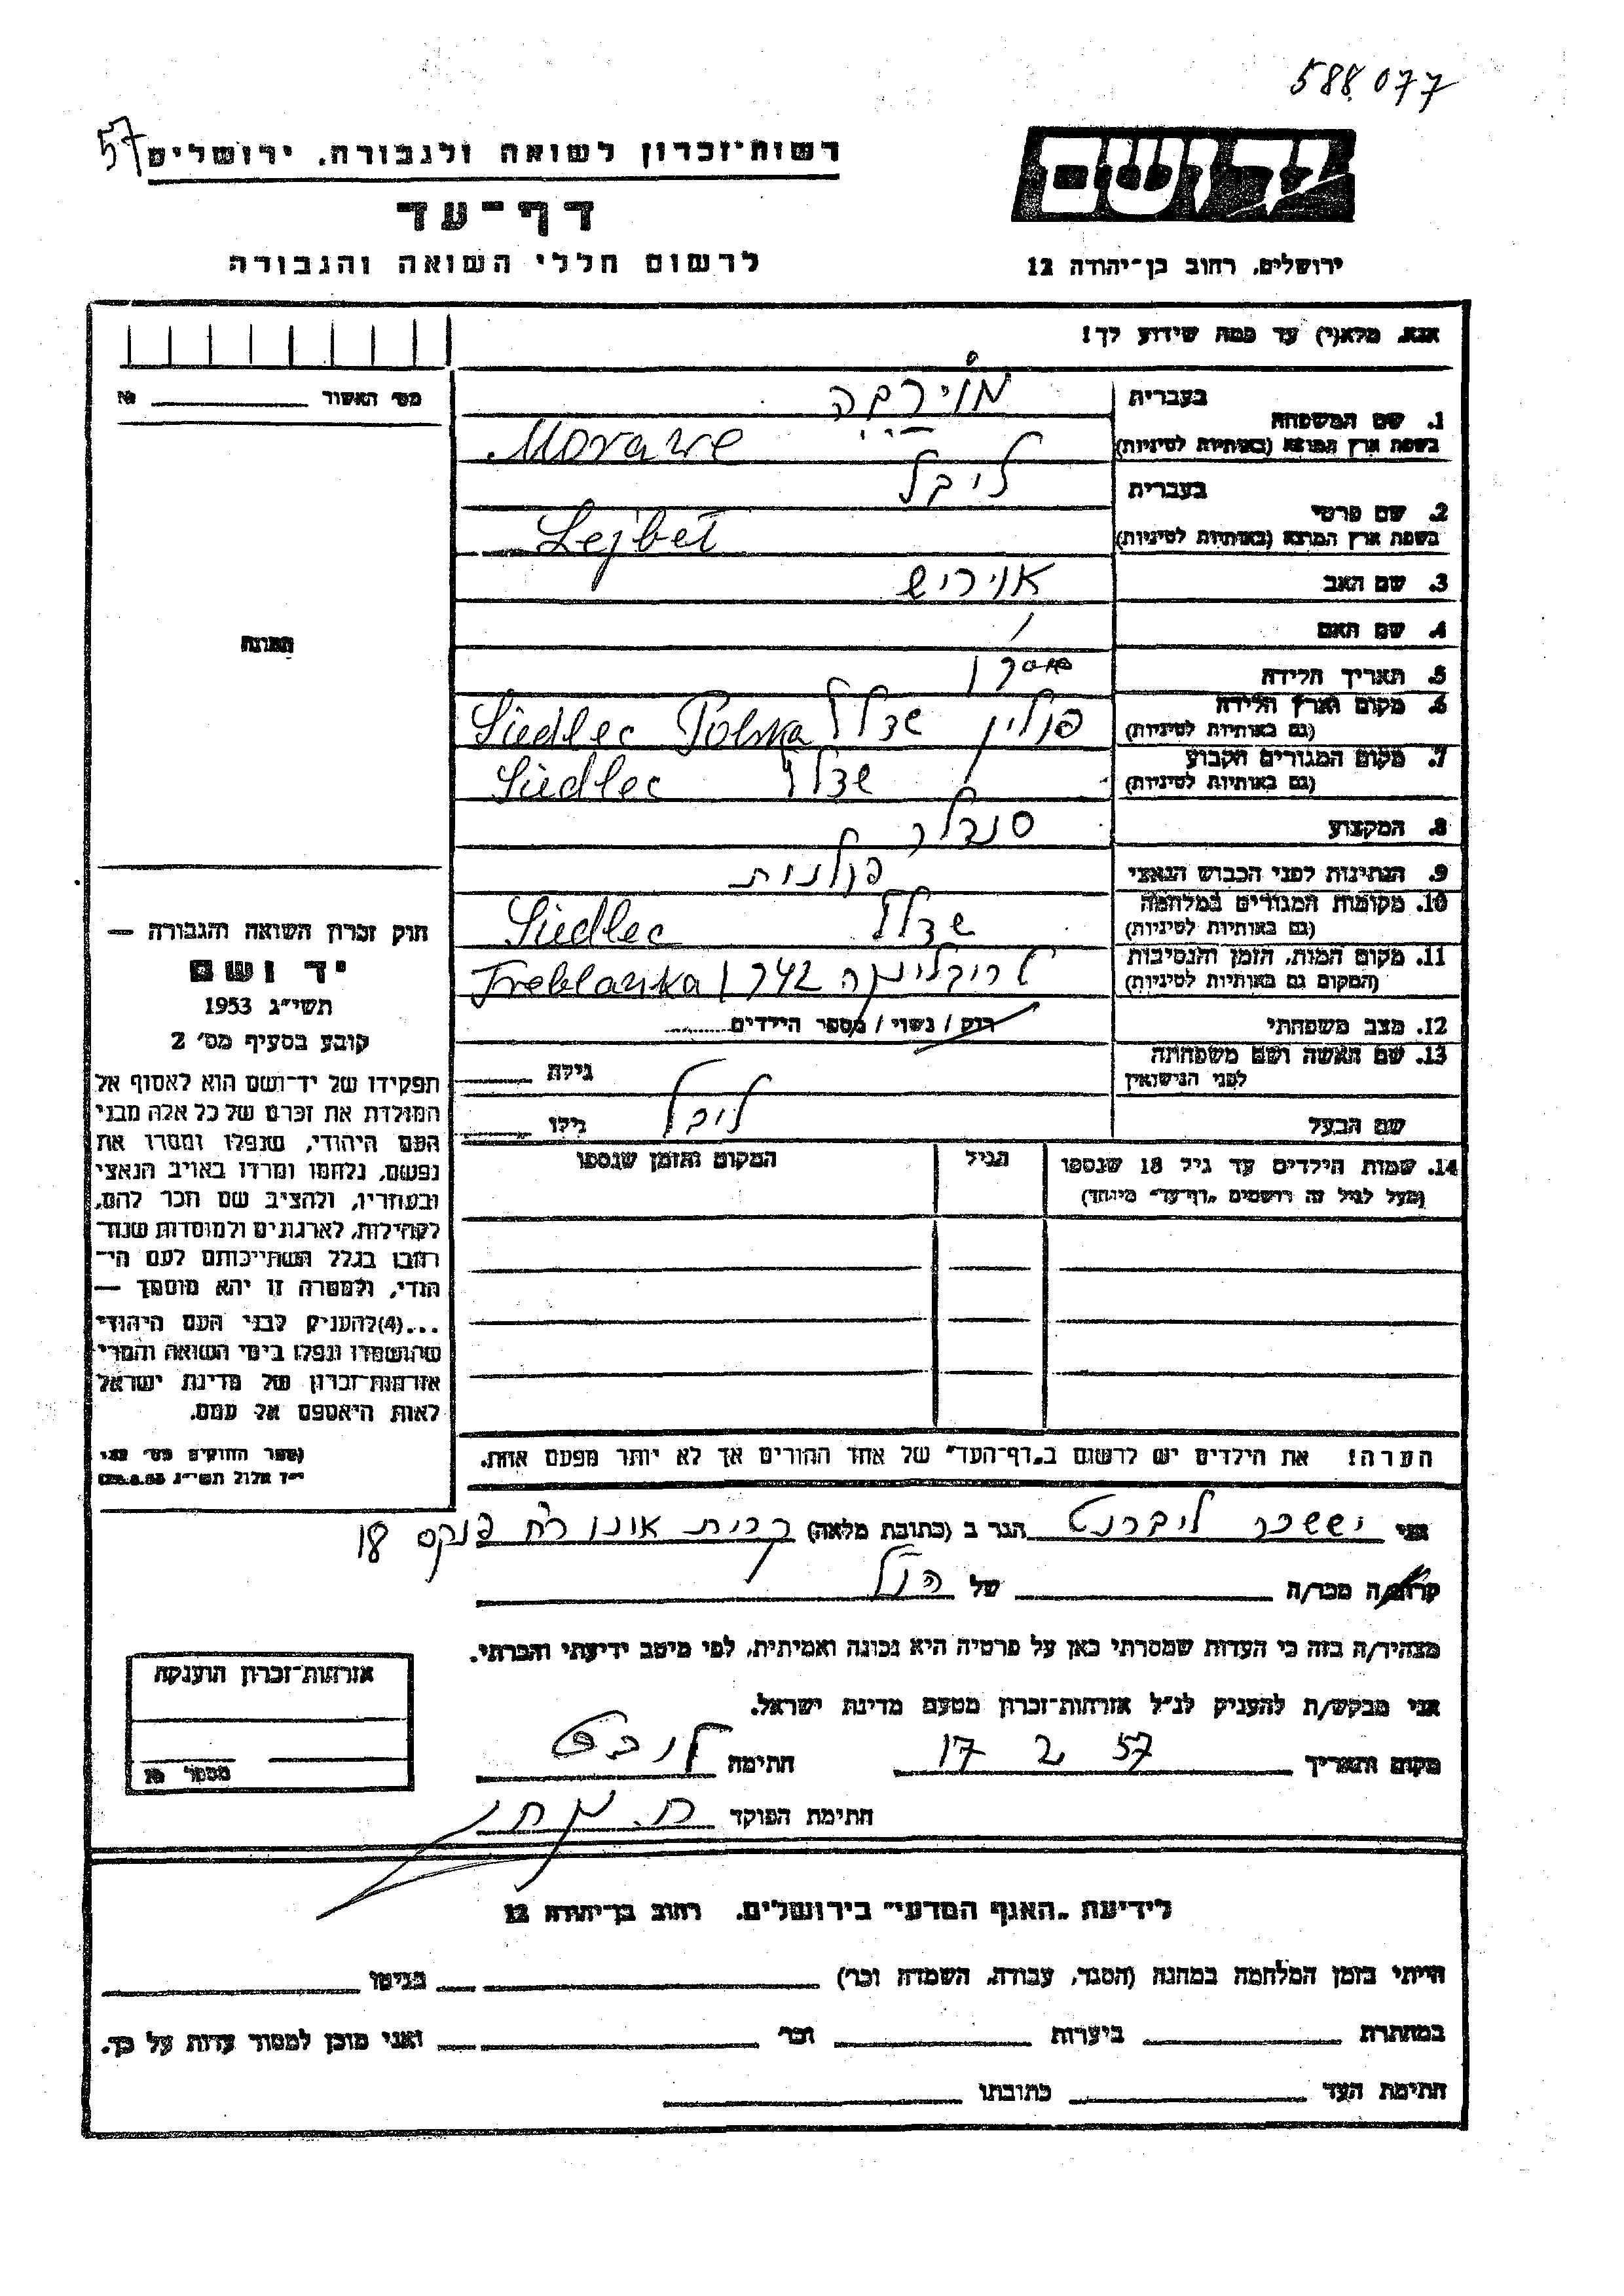 588.077
57
רשות־זכרון לשואה ולגבורה, ירושלים
יד ושם
דף־עד
לרשום חללי השואה והגבורה
ירושלים, רחוב בן־יהודה 12
אנא, מלא(י) עד כמה שידוע לך!
מס׳ האשור № 
בעברית
1. שם המשפחה
Morawe
בשפת ארץ המוצא (באותיות לטיניות)
ליבל
בעברית
2. שם פרטי
Lejbel
בשפת ארץ המוצא (באותיות לטיניות)
3. שם האב
4. שם האם
תמונה
5. תאריך הלידה
6. מקום וארץ הלידה
פולין שדלץ Siedlec Polska
(גם באותיות לטיניות)
7. מקום המגורים הקבוע
שדלץ Siedlec
(גם באותיות לטיניות)
8. המקצוע
סנדלר
9. הנתינות לפני הכבוש הנאצי
פולנית
10. מקומות המגורים במלחמה
שדלץ Siedlec
(גם באותיות לטיניות)
11. מקום המות, הזמן והנסיבות
טריבלינקה 1942 Treblanka
(המקום גם באותיות לטיניות)
12. מצב משפחתי
רוק / נשוי / מספר הילדים
13. שם האשה ושם משפחתה
לפני הנישואין
גילה
שם הבעל
ליבל
גילו
14. שמות הילדים עד גיל 18 שנספו
(מעל לגיל זה רושמים „דף־עד״ מיוחד)
הגיל
המקום והזמן שנספו
חוק זכרון השואה והגבורה —
יד ושם
תשי״ג 1953
קובע בסעיף מס׳ 2
תפקידו של יד־ושם הוא לאסוף אל
המולדת את זכרם של כל אלה מבני
העם היהודי, שנפלו ומסרו את
נפשם, נלחמו ומרדו באויב הנאצי
ובעוזריו, ולהציב שם וזכר להם,
לקהילות, לארגונים ולמוסדות שנח־
רבו בגלל השתייכותם לעם הי־
הודי, ולמטרה זו יהא מוסמך —
...(4)להעניק לבני העם היהודי
שהושמדו ונפלו בימי השואה והמרי
אזרחות־זכרון של מדינת ישראל
לאות היאספם אל עמם.
(ספר החוקים מס׳ 132,
י״ז אלול תשי״ג 28.8.53)
הערה! את הילדים יש לרשום ב„דף־העד״ של אחד ההורים אך לא יותר מפעם אחת.
אני יששכר ליברנט הגר ב (כתובת מלאה) קרית אונו רח׳ פנקס 18
קרוב/ה מכר/ה של הנ״ל
מצהיר/ה בזה כי העדות שמסרתי כאן על פרטיה היא נכונה ואמיתית, לפי מיטב ידיעתי והכרתי.
אני מבקש/ת להעניק לנ״ל אזרחות־זכרון מטעם מדינת ישראל.
מקום ותאריך 17 2 57 חתימה
חתימת הפוקד
אזרחות־זכרון הוענקה
מספר №
לידיעת „האגף המדעי״ בירושלים, רחוב בן־יהודה 12
הייתי בזמן המלחמה במחנה (הסגר, עבודה, השמדה וכו׳) בגיטו
במחתרת ביערות וכו׳ ואני מוכן למסור עדות על כך.
חתימת העד כתובתו